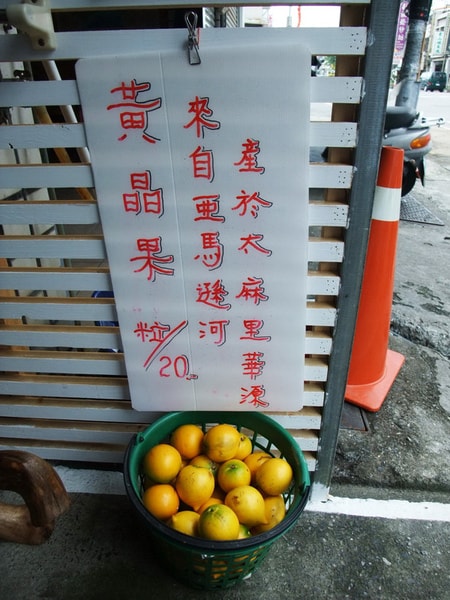 產於太麻里華源
來自亞馬遜河
黃晶果 粒/20